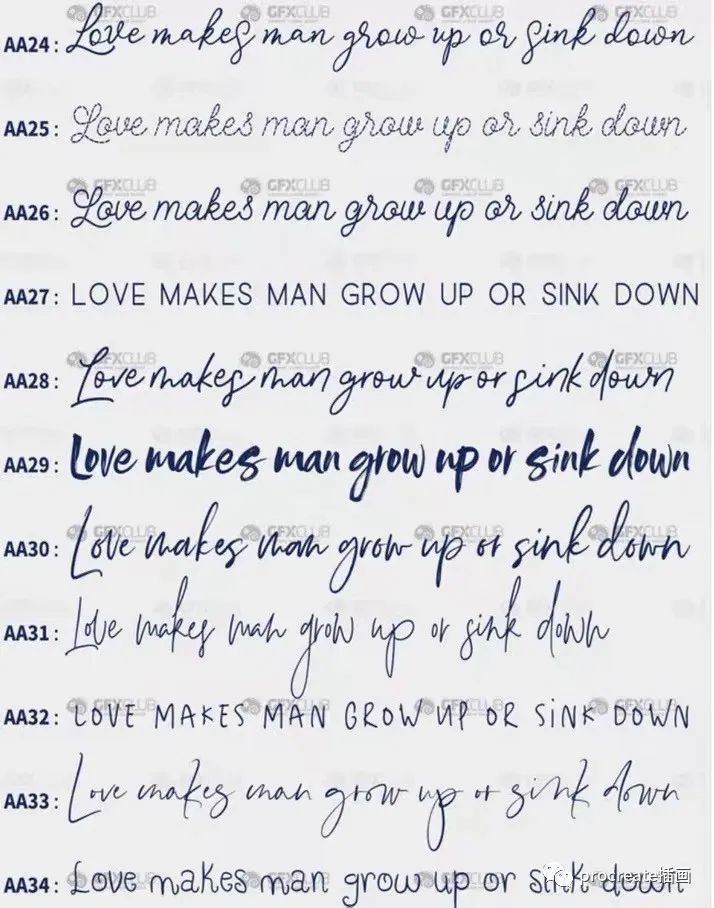 AA24: Love makes man grow up or sink down
AA25: Love makes man grow up or sink down
AA26: Love makes man grow up or sink down
AA27: LOVE MAKES MAN GROW UP OR SINK DOWN
AA28: Love makes man grow up or sink down
AA29: Love makes man grow up or sink down
AA30: Love makes man grow up or sink down
AA31: Love makes man grow up or sink down
AA32: LOVE MAKES MAN GROW UP OR SiNK DOWN
AA33: Love makes man grow up or sink down
AA34: Love makes man grow up or sink down
GFXCLUB
procreate插画